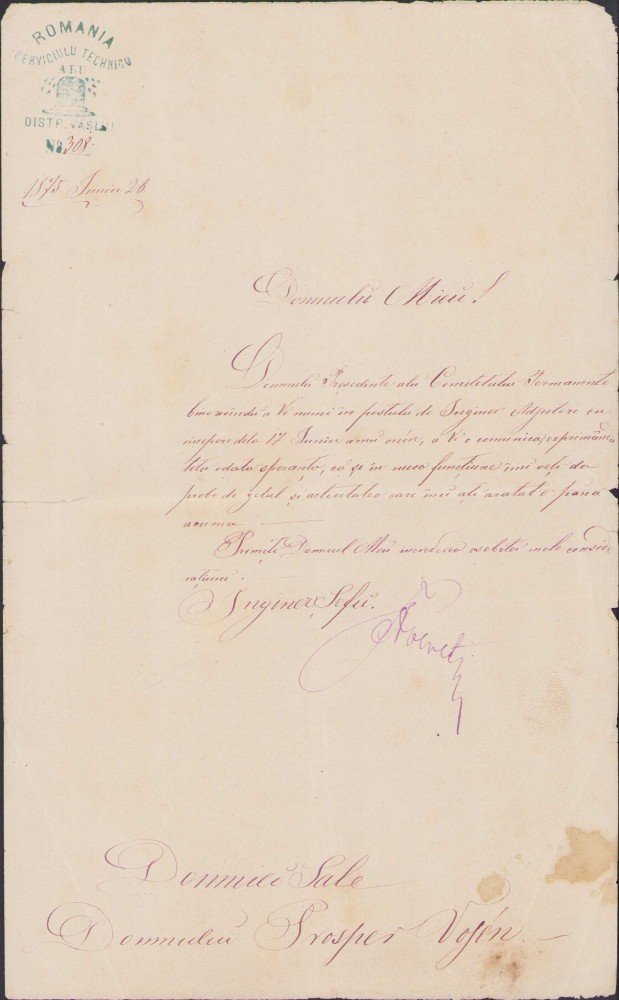 ROMANIA
SERVICIULU TECHNICU
ALU
DISTR. VASLUI
No 308
1875 Juniu 26
Domnulu Mieu!
Domnulu Preşedinte alu Comitetului Permanente
Vĕ numi in postulu de Inginer Adjutore cu
incepere dela 17 Juniu anul , a Vĕ o comunica, exprimându
odata speranţa, că şi in noua funcţiune imi veţi da
probe de zelul şi activitatea care imi aţi aratat'o pâna
acuma
Primiţi Domnul Meu osebitei mele conside
raţiuni.
Inginer Şefu.
Domniei Sale
Domnului Prosper